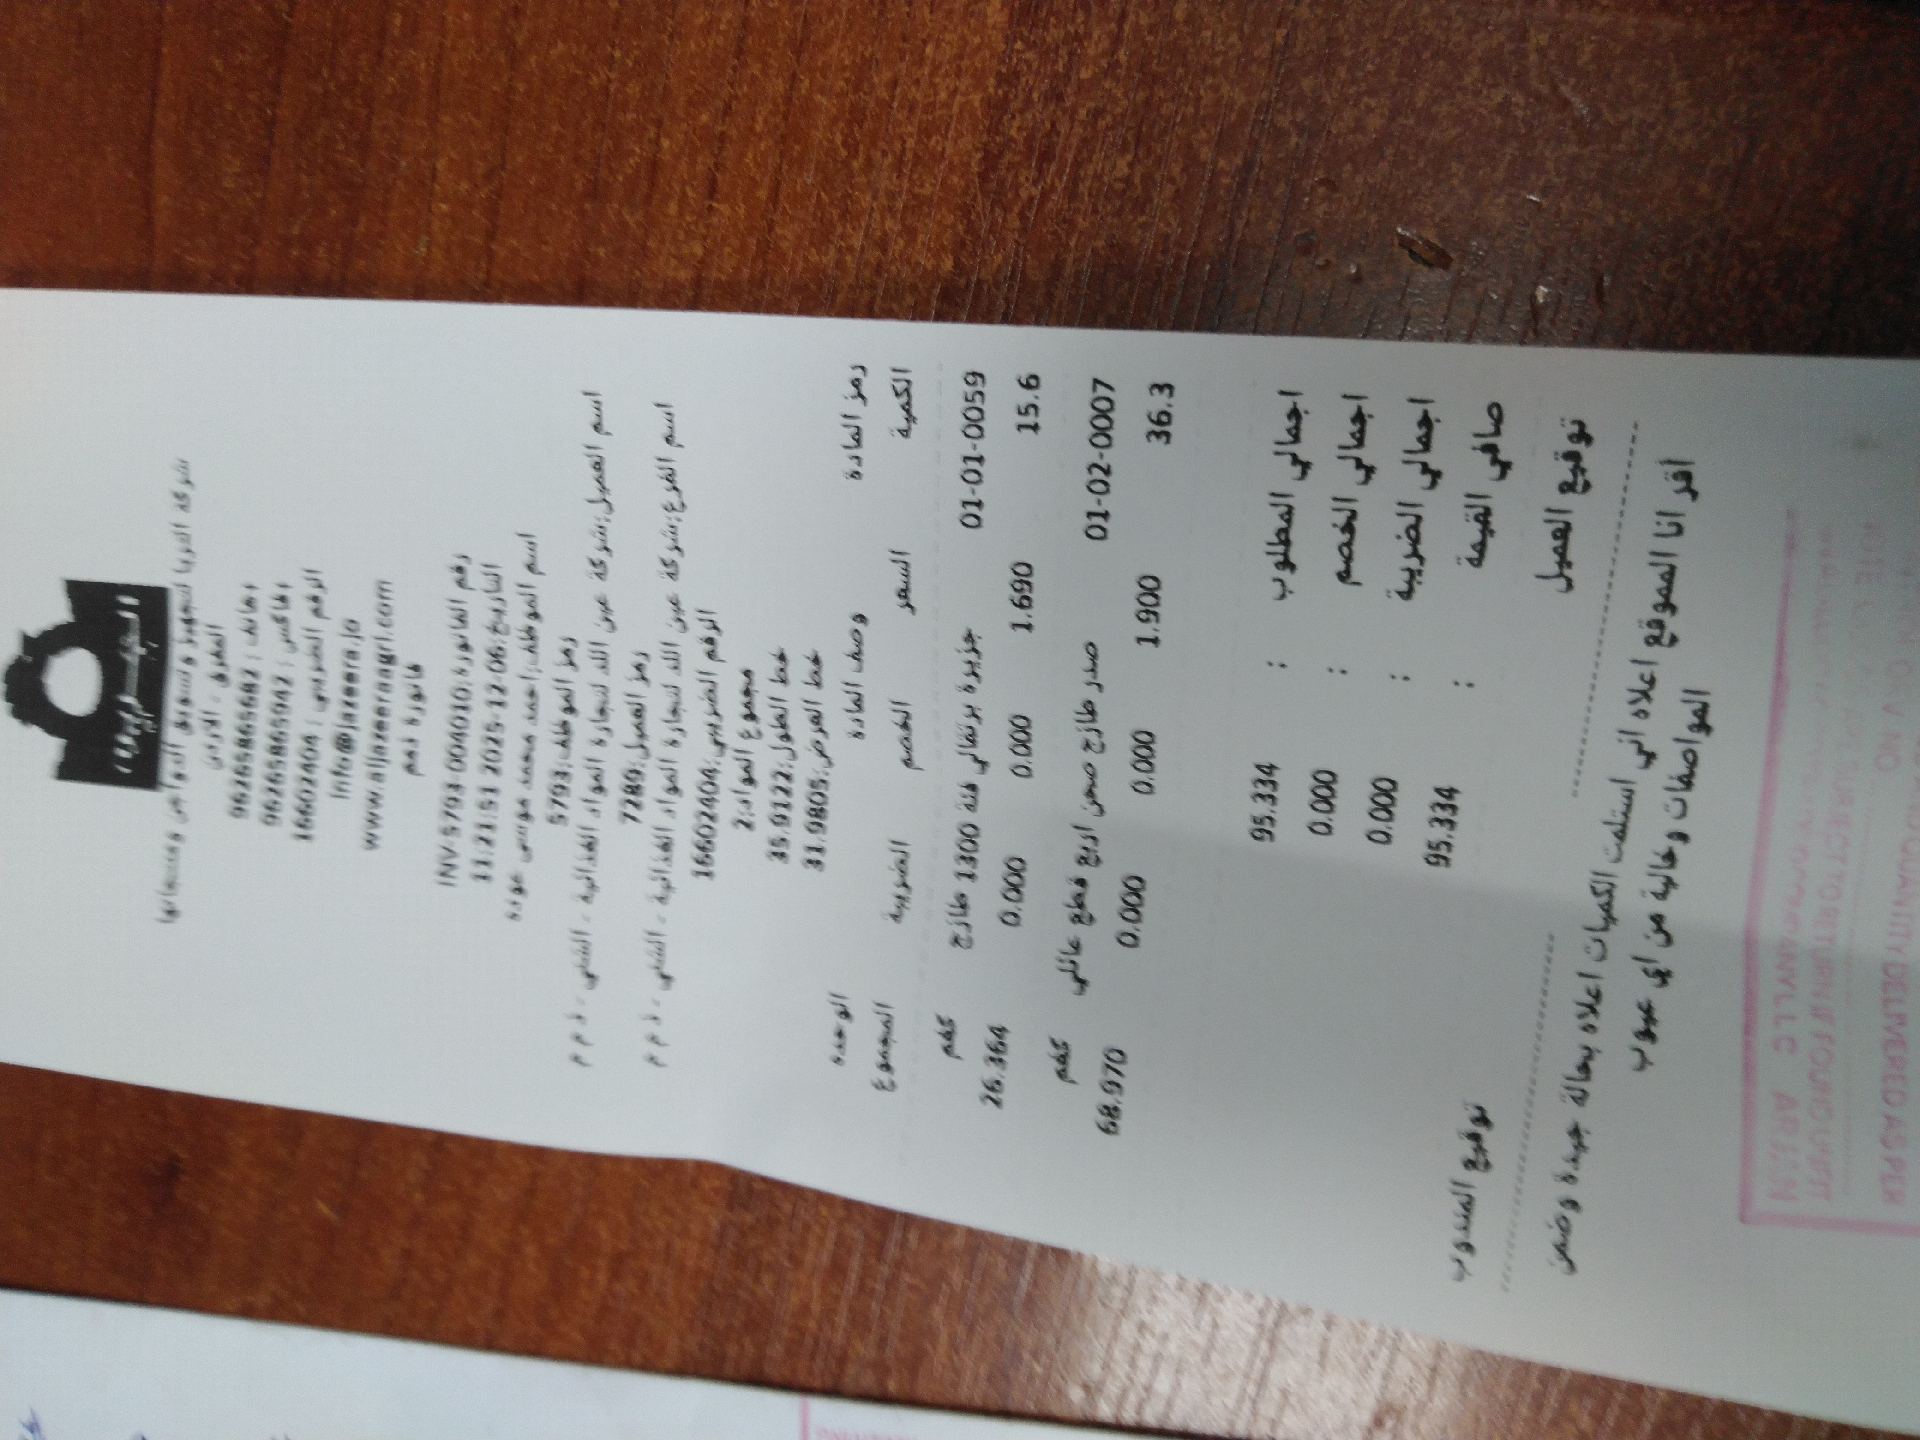 الجزيرة
شركة القربا لتجهيز و تسويق الدواجن ومنتجاتها
المفرق - الاردن
هاتف : 96265865682
فاكس : 96265865942
الرقم الضريبي : 16602404
Info@jazeera.jo
www.aljazeeraagri.com
فاتورة ذمم
رقم الفاتورة:INV-5793-004010
التاريخ:2025-12-06 11:21:51
اسم الموظف:احمد محمد موسى عودة
رمز الموظف:5793
اسم العميل:شركة عين الله لتجارة المواد الغذائية - الشلبي - ذ م م
رمز العميل:7289
اسم الفرع:شركة عين الله لتجارة المواد الغذائية - الشلبي - ذ م م
الرقم الضريبي:16602404
مجموع المواد:2
خط الطول:35.9122
خط العرض:31.9805
رمز المادة وصف المادة الوحدة
الكمية السعر الخصم الضريبة المجموع
01-01-0059 جزيرة برتقالي فئة 1300 طازج كغم
15.6 1.690 0.000 0.000 26.364
01-02-0007 صدر طازج صحن اربع قطع عائلي كغم
36.3 1.900 0.000 0.000 68.970
اجمالي المطلوب : 95.334
اجمالي الخصم : 0.000
اجمالي الضريبة : 0.000
صافي القيمة : 95.334
توقيع العميل توقيع المندوب
اقر انا الموقع اعلاه اني استلمت الكميات اعلاه بحالة جيدة وضمن
المواصفات وخالية من اي عيوب
COMPANY L.L.C ARJAN
SUBJECT TO RETURN IF FOUND UNFIT
QUANTITY DELIVERED AS PER